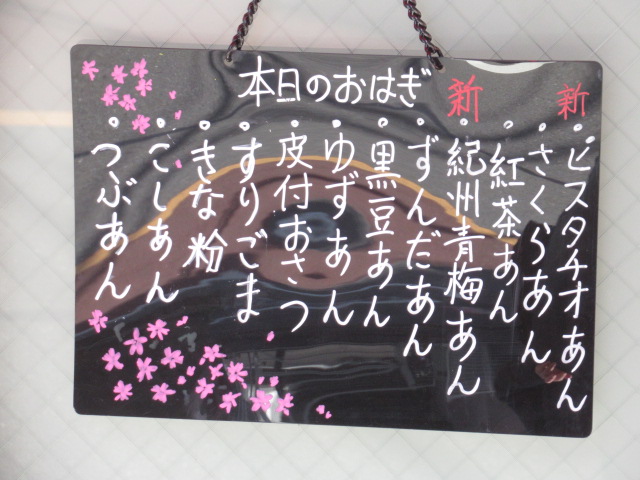 本日のおはぎ
新
・ピスタチオあん
・さくらあん
・紅茶あん
新
・紀州青梅あん
・ずんだあん
・黒豆あん
・ゆずあん
・皮付おさつ
・すりごま
・きな粉
・こしあん
・つぶあん